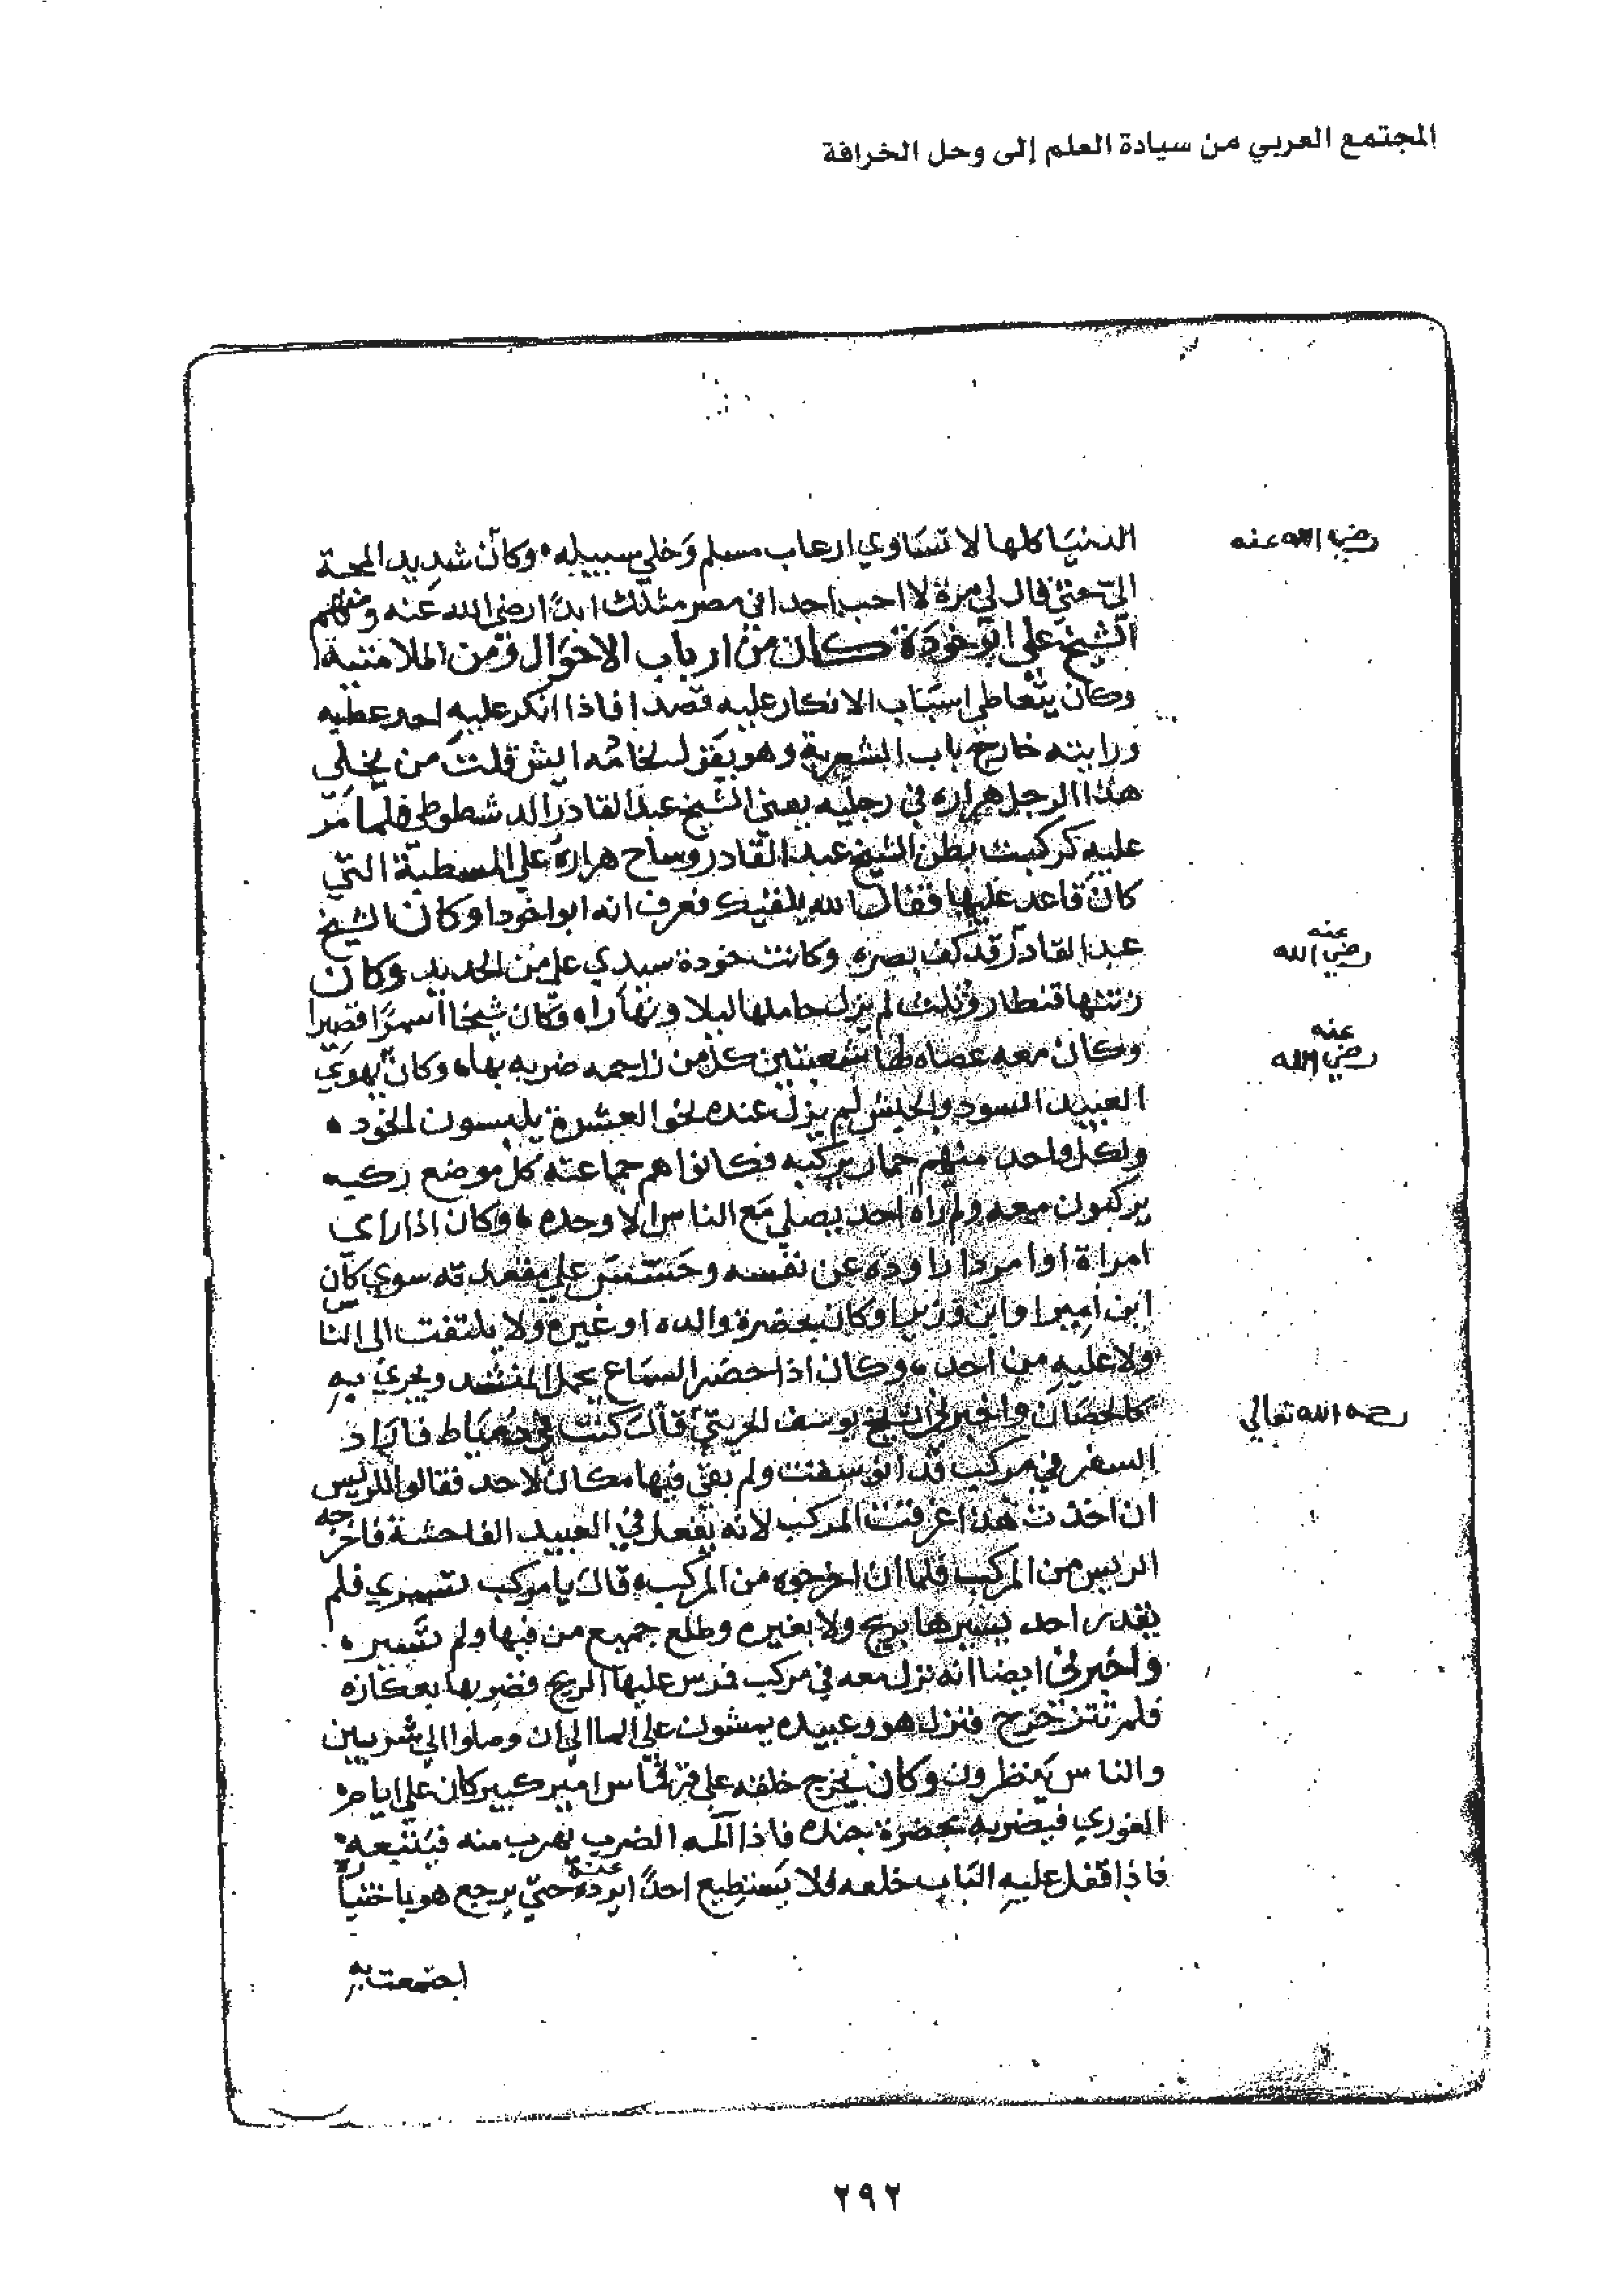 المجتمع العربي من سيادة العلم إلى وحل الخرافة
الدنيا كلها لا تساوي ارعاب مسلم وخلي سبيله وكان شديد المحبة
رضي الله عنه
الي حتي قال لي مرة لا احب احدا في مصر مثلك ابدا رضي الله عنه ومنهم
الشيخ علي ابو خودة كان من ارباب الاحوال ومن الملامتية
وكان يتعاطي اسباب الانكار عليه قصدا فاذا انكر عليه احد عطبه
ورايته خارج باب الشعرية وهو يقول لخادمه ايش قلت من يخلي
هذا الرجل هراره في رجليه يعني الشيخ عبد القادر الدشطوطي فلما مر
عليه كركبت بطن الشيخ عبد القادر وساح هراره علي المسطبة التي
كان قاعد عليها فقال الله يلقيك فعرف انه ابو اخودا وكان الشيخ
عبد القادر قد كف بصره وكانت خودة سيدي علي من الحديد وكان
رضي الله عنه
زنتها قنطار وثلث لم يزل حاملها ليلا ونهارا وكان شيخا اسمرا قصيرا
وكان معه عصاه لها شعبتين كل من زاحمه ضربه بها وكان يهوي
رضي الله عنه
العبيد السود والحبش لم يزل عنده نحو العشرة يلبسون الخود
ولكل واحد منهم حمار يركبه فكانوا هم جماعته كل موضع ركب
يركبون معه ولم راه احد يصلي مع الناس الا وحده وكان اذا راي
امراة او امردا راوده عن نفسه وحسس علي مقعدته سوي كان
ابن امير او ابن وزير او كان بحضرة والده او غيره ولا يلتفت الي الناس
ولا عليه من احد وكان اذا حضر السماع يحمل المنشد ويجري به
كالحصان واخبرني الشيخ يوسف الحريثي قال كنت في دمياط فاراد
رحمه الله تعالي
السفر في مركب قد انوسقت ولم بقي فيها مكان لاحد فقالوا للريس
ان اخذت هذا غرقت المركب لانه يفعل في العبيد الفاحشة فاخرجه
الريس من المركب فلما ان اخرجوه من المركب قال يا مركب تسمري فلم
يقدر احد يسيرها بريح ولا بغيره وطلع جميع من فيها ولم تسير
واخبرني ايضا انه نزل معه في مركب فرس عليها الريح فضربها بعكازه
فلم تتزحزح فنزل هو وعبيده يمشون علي الما الي ان وصلوا الي شربين
والناس ينظرون وكان يخرج خلفه علي قرقماس امير كبير كان علي ايام
الغوري فيضربه بحضرة جنده فاذا آلمه الضرب يهرب منه فيتبعه
فاذا قفل عليه الباب خلعه فلا يستطيع احدا يرده عنه حتي يرجع هو باختياره
اجتمعت به
٢٩٢